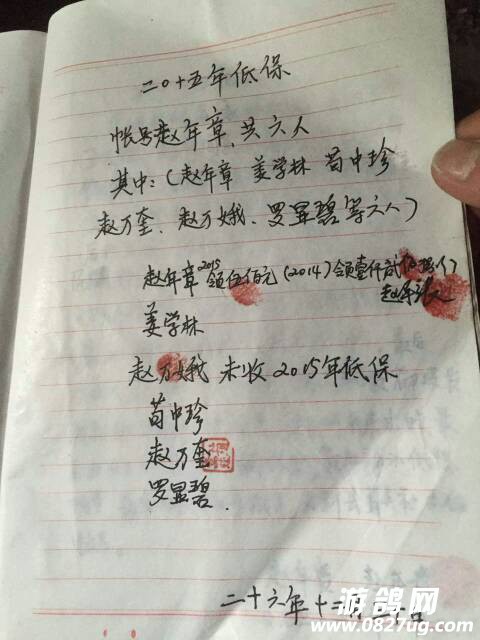 二〇十五年低保
帐号赵年章，共六人
其中：（赵年章 姜学林 苟中珍
赵万奎、赵万娥、罗显碧等六人）
赵年章2015领伍佰元（2014）领壹仟贰佰
赵年章
姜学林
赵万娥 未收2015年低保
苟中珍
赵万奎
罗显碧.
二十六年十二月
游鸽网
www.0827ug.com